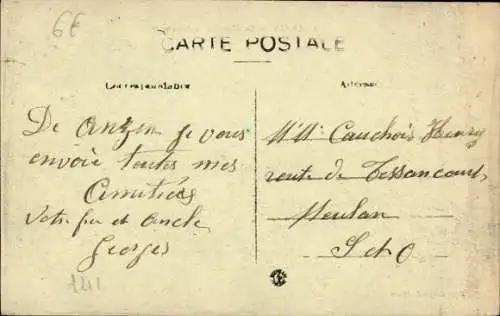 6€
CARTE POSTALE
Correspondance
Adresse
De Anzin je vous
envoie toutes mes
Amitiés
Votre et oncle
Georges
1211
Mr Mr Cauchois Henry
route de Tessancourt
Meulan
S et O